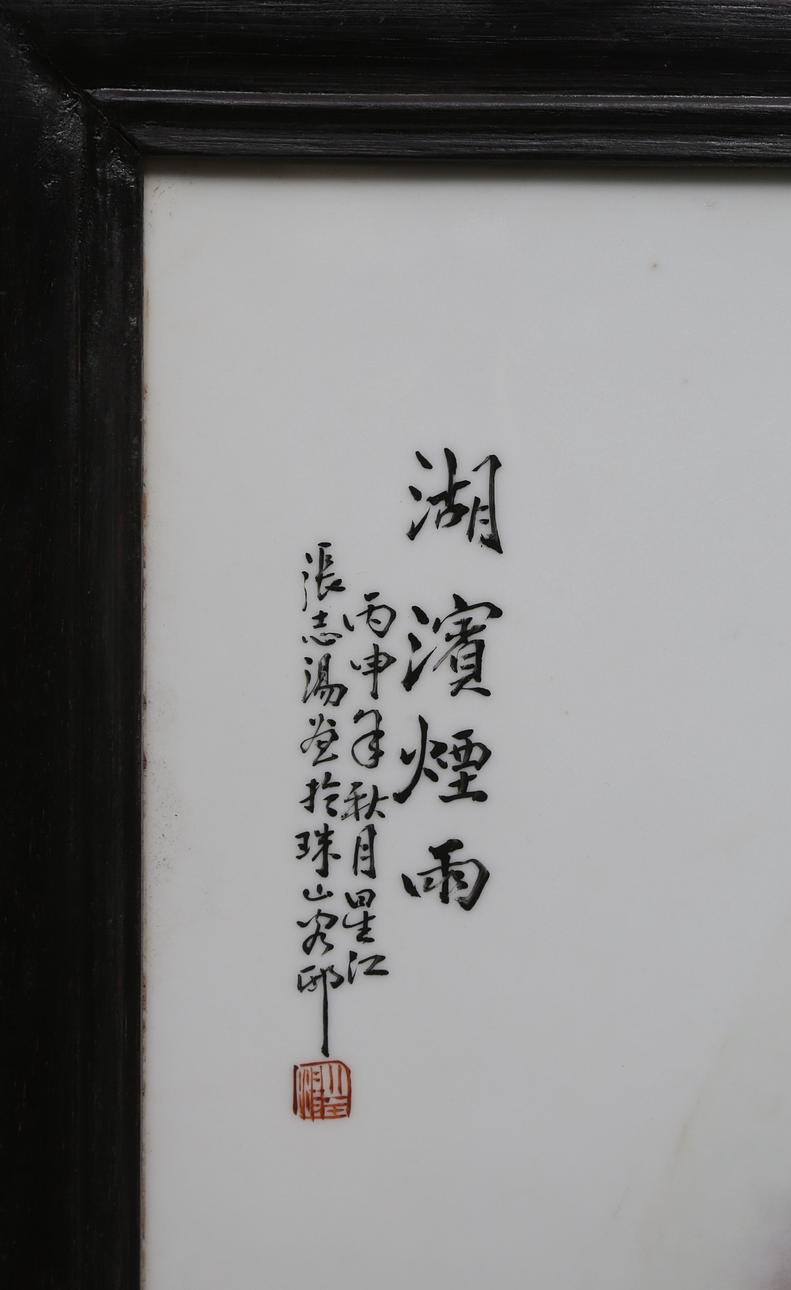 湖濱煙雨
丙申年秋月星江
張志湯畫於珠山客邸